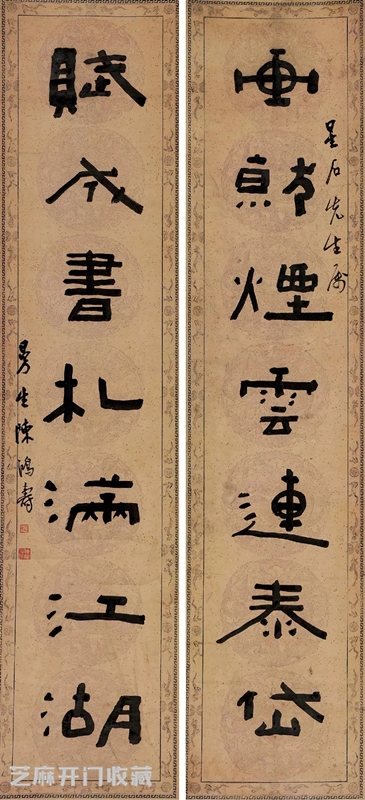 画就煙雲連泰岱
星石先生属
賦成書札滿江湖
曼生陳鴻壽
芝麻开门收藏